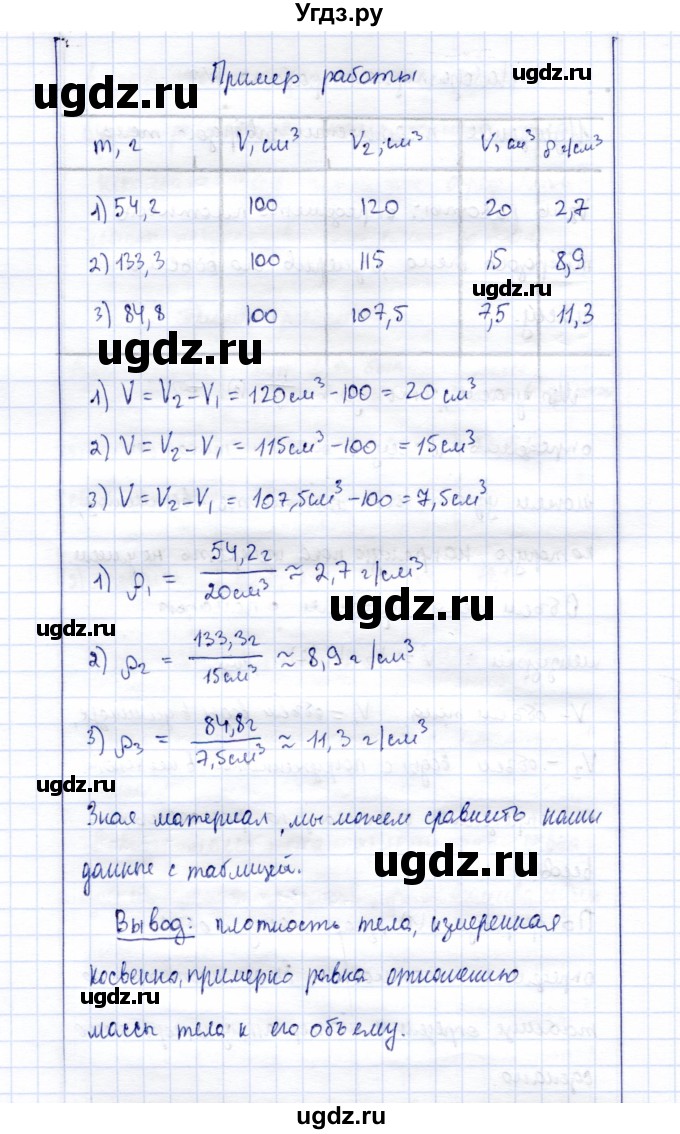 Угдз.ру
Пример работы
ugdz.ru
ugdz.ru
m, г V, см³ V₂, см³ V, см³ ρ г/см³
1) 54,2 100 120 20 2,7
2) 133,3 100 115 15 8,9
ugdz.ru
3) 84,8 100 107,5 7,5 11,3
ugdz.ru
1) V = V₂ - V₁ = 120 см³ - 100 = 20 см³
2) V = V₂ - V₁ = 115 см³ - 100 = 15 см³
3) V = V₂ - V₁ = 107,5 см³ - 100 = 7,5 см³
1) ρ₁ = 54,2 г / 20 см³ ≈ 2,7 г/см³
ugdz.ru
ugdz.ru
2) ρ₂ = 133,3 г / 15 см³ ≈ 8,9 г/см³
3) ρ₃ = 84,8 г / 7,5 см³ ≈ 11,3 г/см³
ugdz.ru
Зная материал, мы можем сравнить наши
данные с таблицей.
ugdz.ru
Вывод: плотность тела, измеренная
косвенно, примерно равна отношению
ugdz.ru
массы тела к его объему.
ugdz.ru